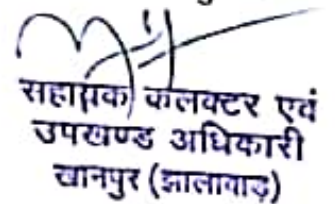 सहायक कलक्टर एवं
उपखण्ड अधिकारी
खानपुर (झालावाड़)